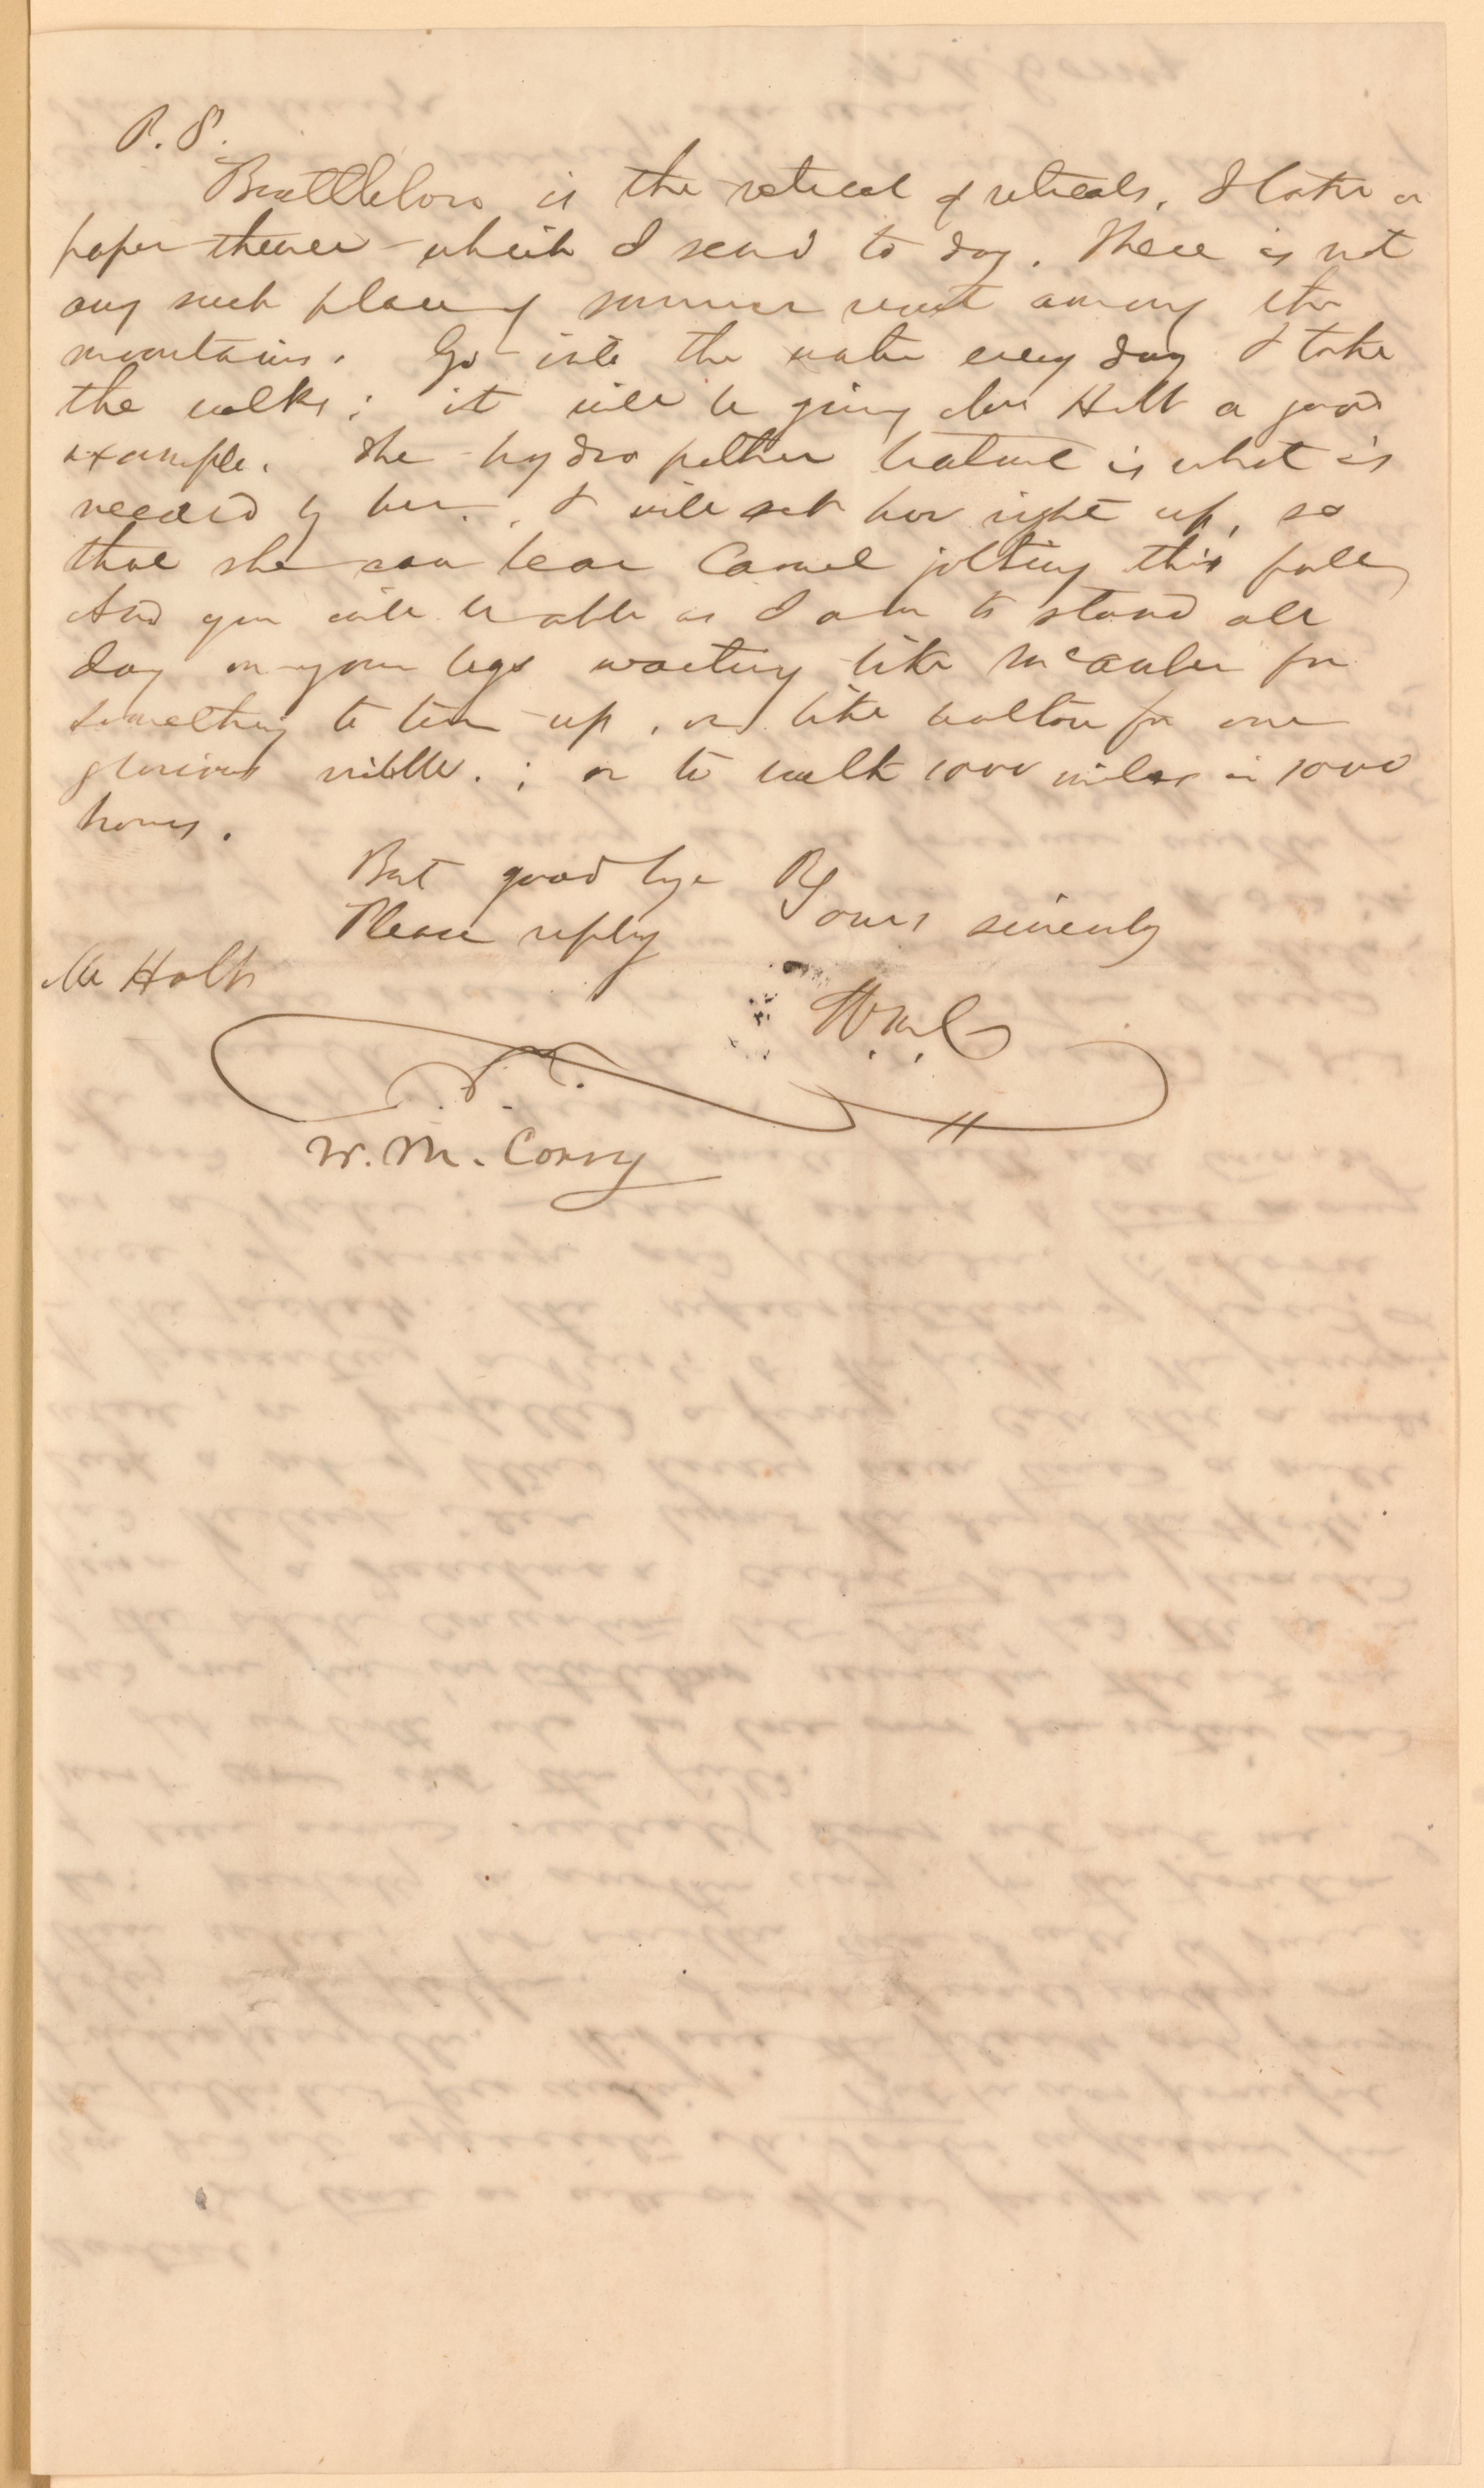 P. S.
Brattleboro is the retreat of retreats. I take a
paper thence which I send to day. There is not
any such place of summer resort among the
mountains. Go into the water every day & take
the walks; it will be giving Mrs Holt a good
example. The hydropathic treatment is what is
needed by her, & will set her right up, so
that she can bear Camel jolting this fall,
And you will be able as I am to stand all
day on your legs waiting like McCawber for
something to turn up, or like Walton for one
glorious nibble.; or to walk 1000 miles in 1000
hours.
But good bye
Please reply
Yours sincerely
Mr Holt
W.M.C
W. M. Corry